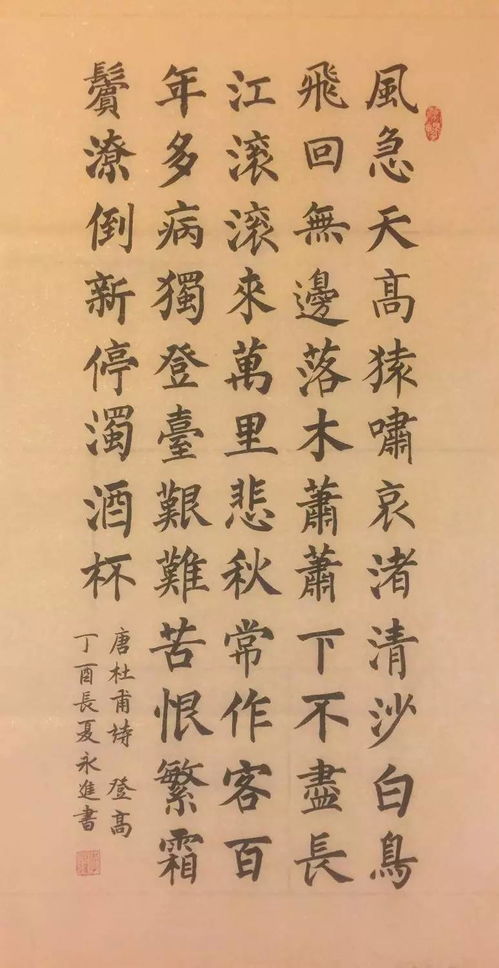 風急天高猿嘯哀渚清沙白鳥
飛回無邊落木蕭蕭下不盡長
江滚滚來萬里悲秋常作客百
年多病獨登臺艱難苦恨繁霜
鬢潦倒新停濁酒杯
唐杜甫詩 登高
丁酉長夏永進書